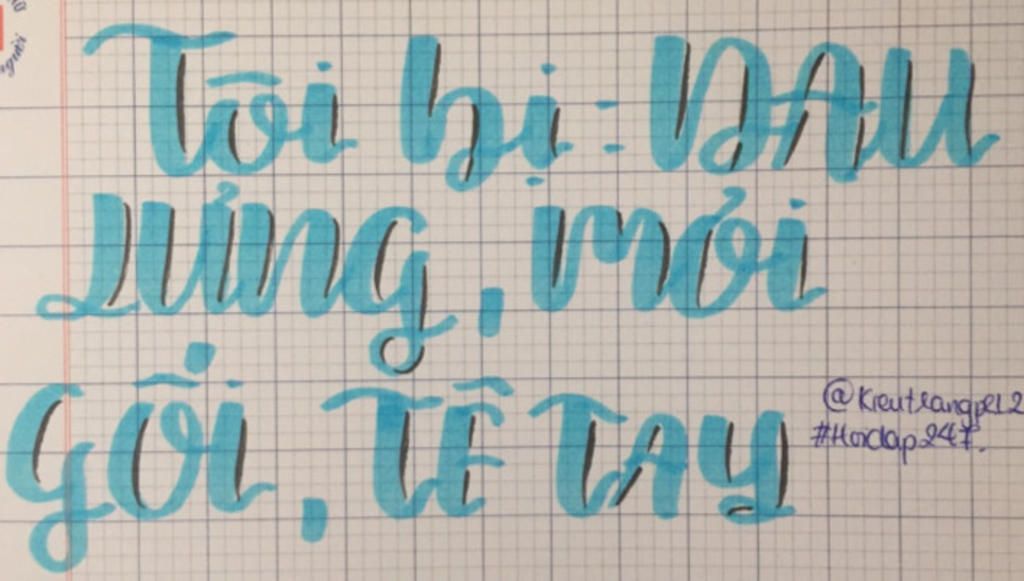 Tôi bị : ĐAU
LƯNG, MỎI
GỐI, TÊ TAY
@Kieutrangpel2
#Hoidap247.
người